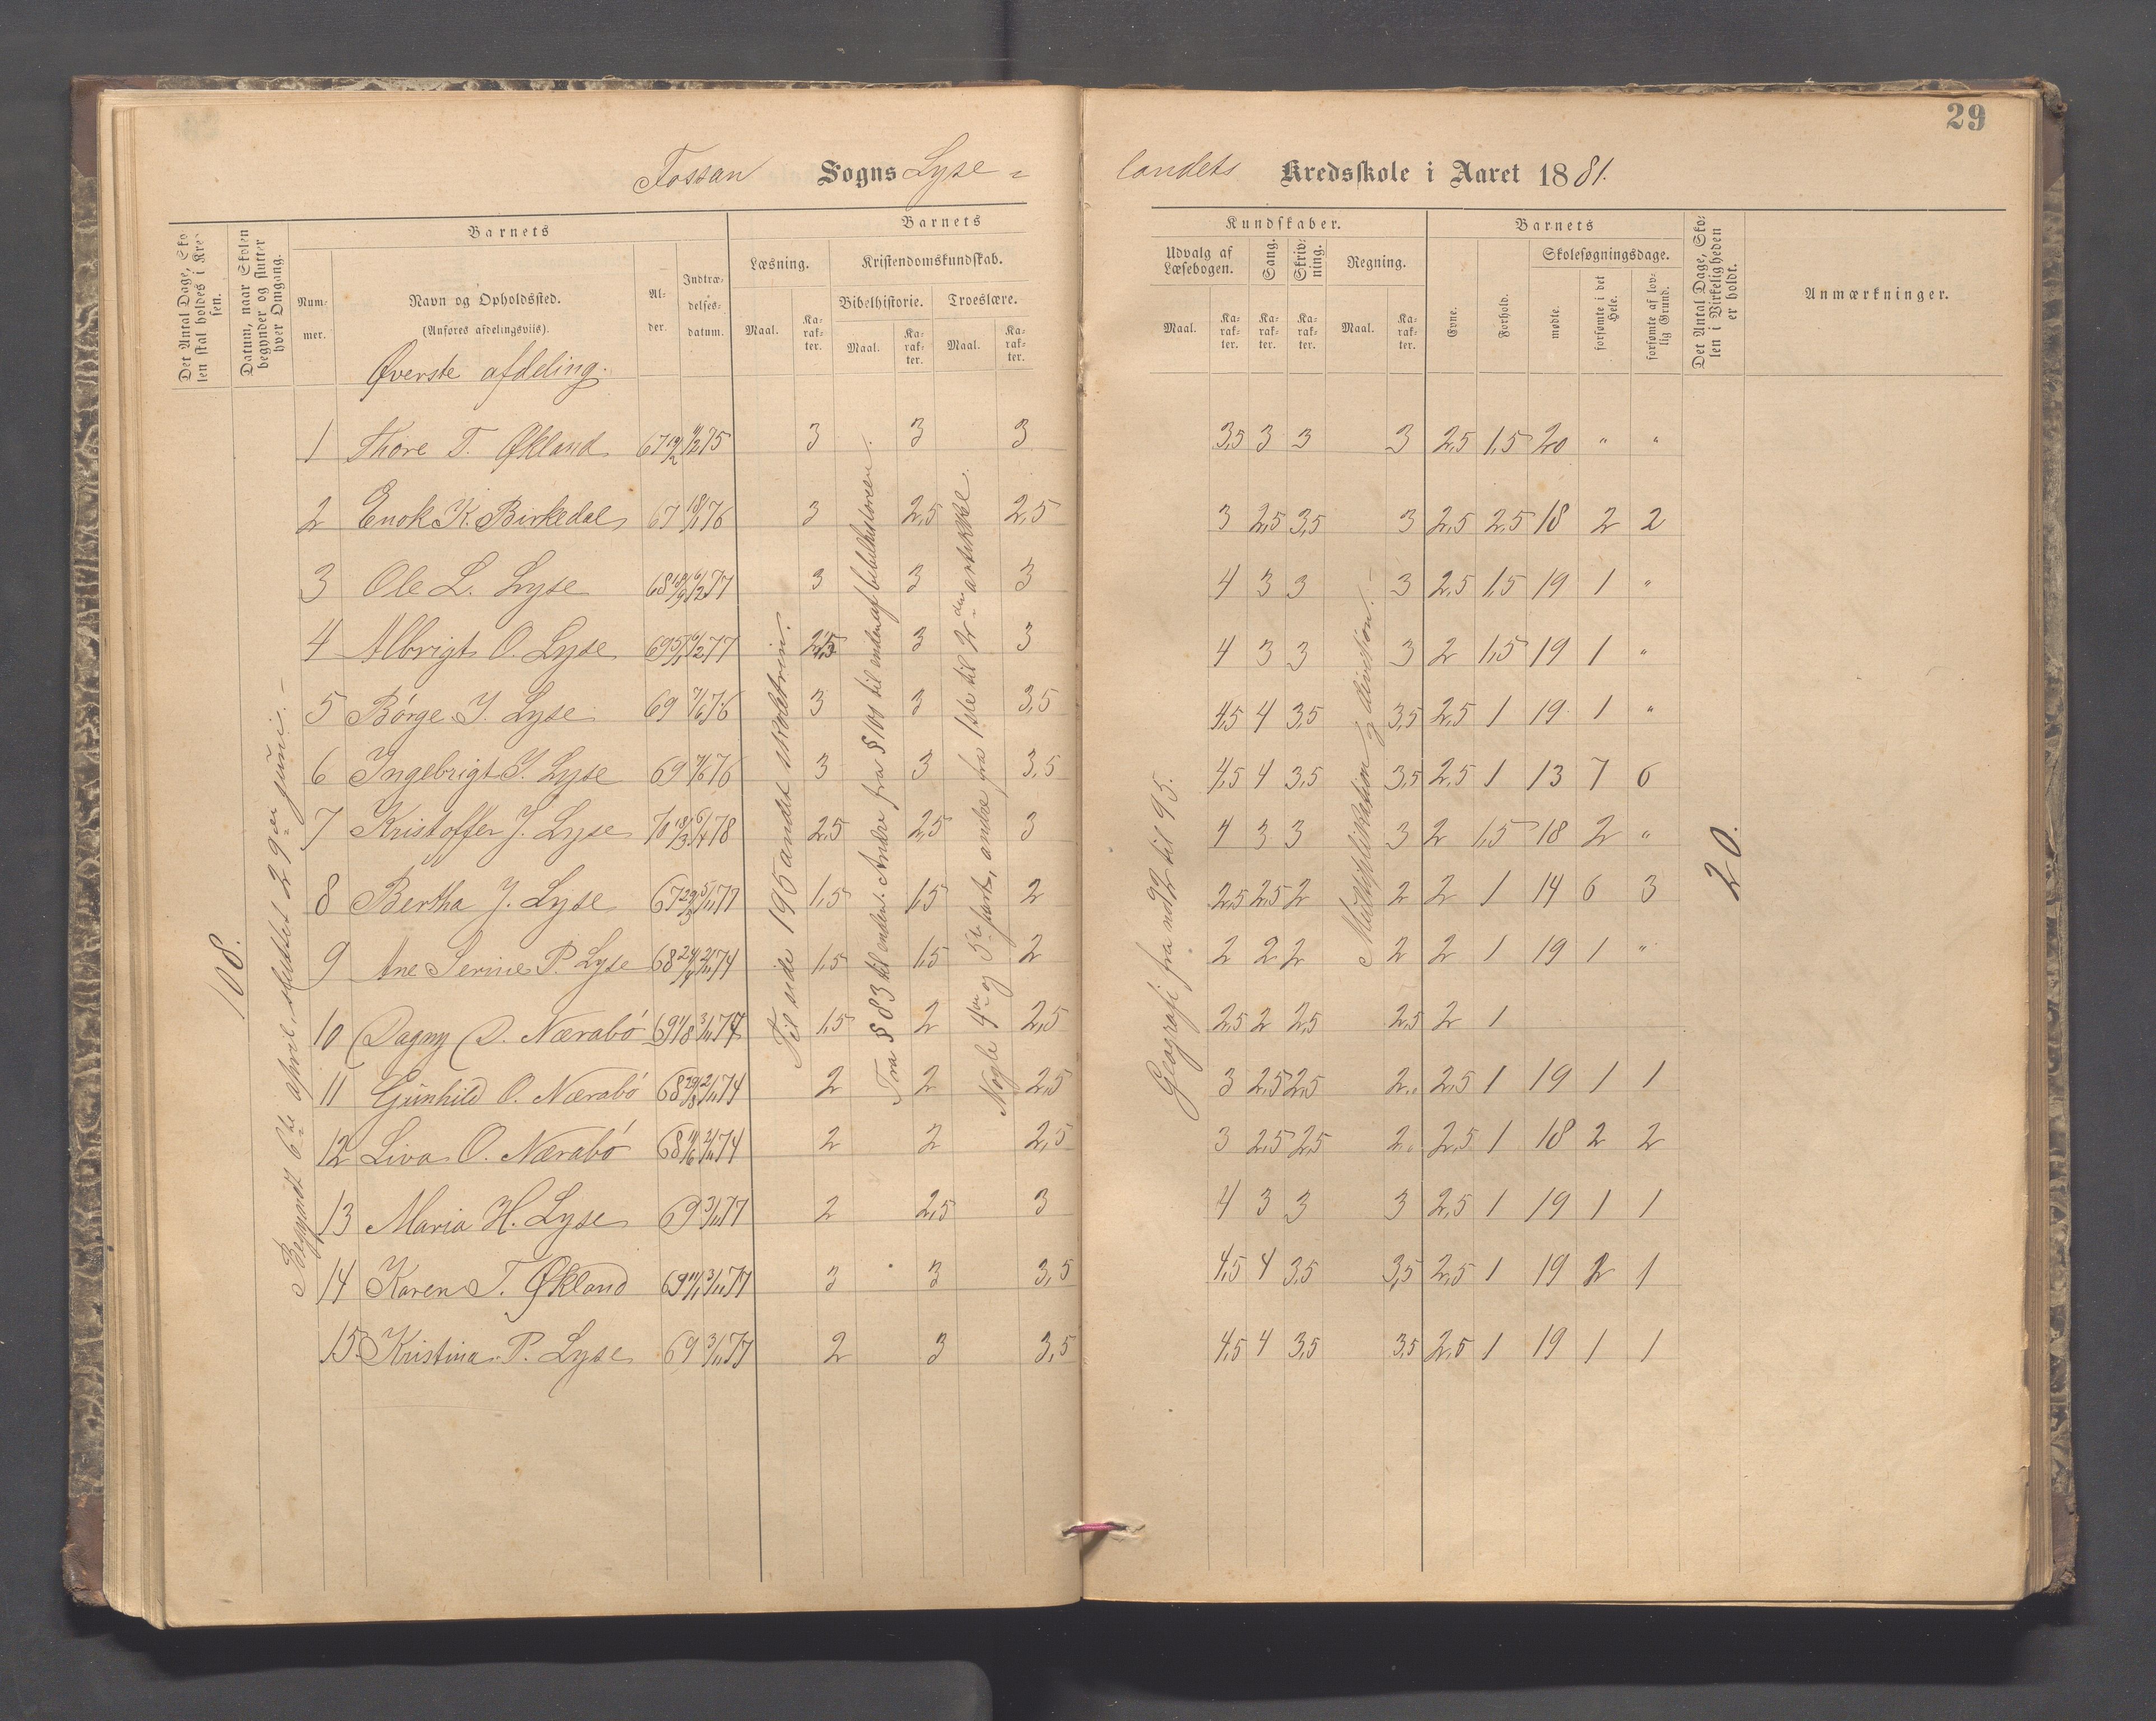 29
Fossan Sogns Lyse-
landets Kredsskole i Aaret 1881.
Det Antal Dage, Skolen skal holdes i Kredsen.
Datum, naar Skolen begynder og slutter hver Omgang.
Barnets
Nummer.
Navn og Opholdssted.
(Anføres afdelingsviis).
Alder.
Indtrædelsesdatum.
Barnets
Læsning.
Maal.
Karakter.
Kristendomskundskab.
Bibelhistorie.
Maal.
Karakter.
Troeslære.
Maal.
Karakter.
Kundskaber.
Udvalg af Læsebogen.
Maal.
Karakter.
Sang.
Karakter.
Skrivning.
Karakter.
Regning.
Maal.
Karakter.
Barnets
Evne.
Forhold.
Skolesøgningsdage.
mødte.
forsømte i det Hele.
forsømte af lovlig Grund.
Det Antal Dage, Skolen i Virkeligheden er holdt.
Anmærkninger.
Øverste afdeling.
108.
Begyndt 6te april, sluttet 29de juni. -
Til side 195 andet skoletrin.
Fra § 83 til enden. Andre fra § 101 til enden af bibelhistorien.
Nogle 4de og 5te part, andre fra 1ste til 2den artikkel.
Geografi fra nd 92 til 95.
Multiplikation og division. -
20.
1 Thore T. Økland 67 75 3 3 3 3,5 3 3 3 2,5 1,5 20 " "
2 Enok K. Birkedal 67 76 3 2,5 2,5 3 2,5 3,5 3 2,5 2,5 18 2 2
3 Ole L. Lyse 68 77 3 3 3 4 3 3 3 2,5 1,5 19 1 "
4 Albrigt O. Lyse 69 77 2,5 3 3 4 3 3 3 2 1,5 19 1 "
5 Børge J. Lyse 69 76 3 3 3,5 4,5 4 3,5 3,5 2,5 1 19 1 "
6 Ingebrigt J. Lyse 69 76 3 3 3,5 4,5 4 3,5 3,5 2,5 1 13 7 6
7 Kristoffer J. Lyse 70 78 2,5 2,5 3 4 3 3 3 2 1,5 18 2 "
8 Bertha J. Lyse 67 77 1,5 1,5 2 2,5 2,5 2 2 2 1 14 6 3
9 Ane Serine P. Lyse 68 74 1,5 1,5 2 2 2 2 2 2 1 19 1 "
10 Dagny D. Nærabø 69 1,5 2 2,5 2,5 2 2,5 2,5 2 1
11 Gunhild O. Nærabø 68 74 2 2 2,5 3 2,5 2,5 2 2,5 1 19 1 1
12 Liva O. Nærabø 68 74 2 2 2,5 3 2,5 2,5 2 2,5 1 18 2 2
13 Maria H. Lyse 69 3/11 77 2 2,5 3 4 3 3 3 2,5 1 19 1 1
14 Karen T. Økland 69 3/11 77 3 3 3,5 4,5 4 3,5 3,5 2,5 1 19 1
15 Kristina P. Lyse 69 3/11 77 2 3 3,5 4,5 4 3,5 3,5 2,5 1 19 1 1